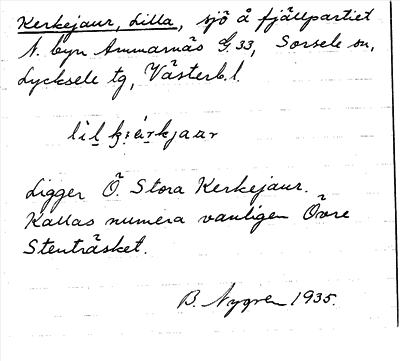 Kerkejaur, Lilla, sjö å fjällpartiet
N. byn Ammarnäs G. 33, Sorsele sn,
Lycksele tg, Västerb. l.
Ligger Ö. Stora Kerkejaur.
Kallas numera vanligen Övre
Stenträsket.
B. Nygren 1935.